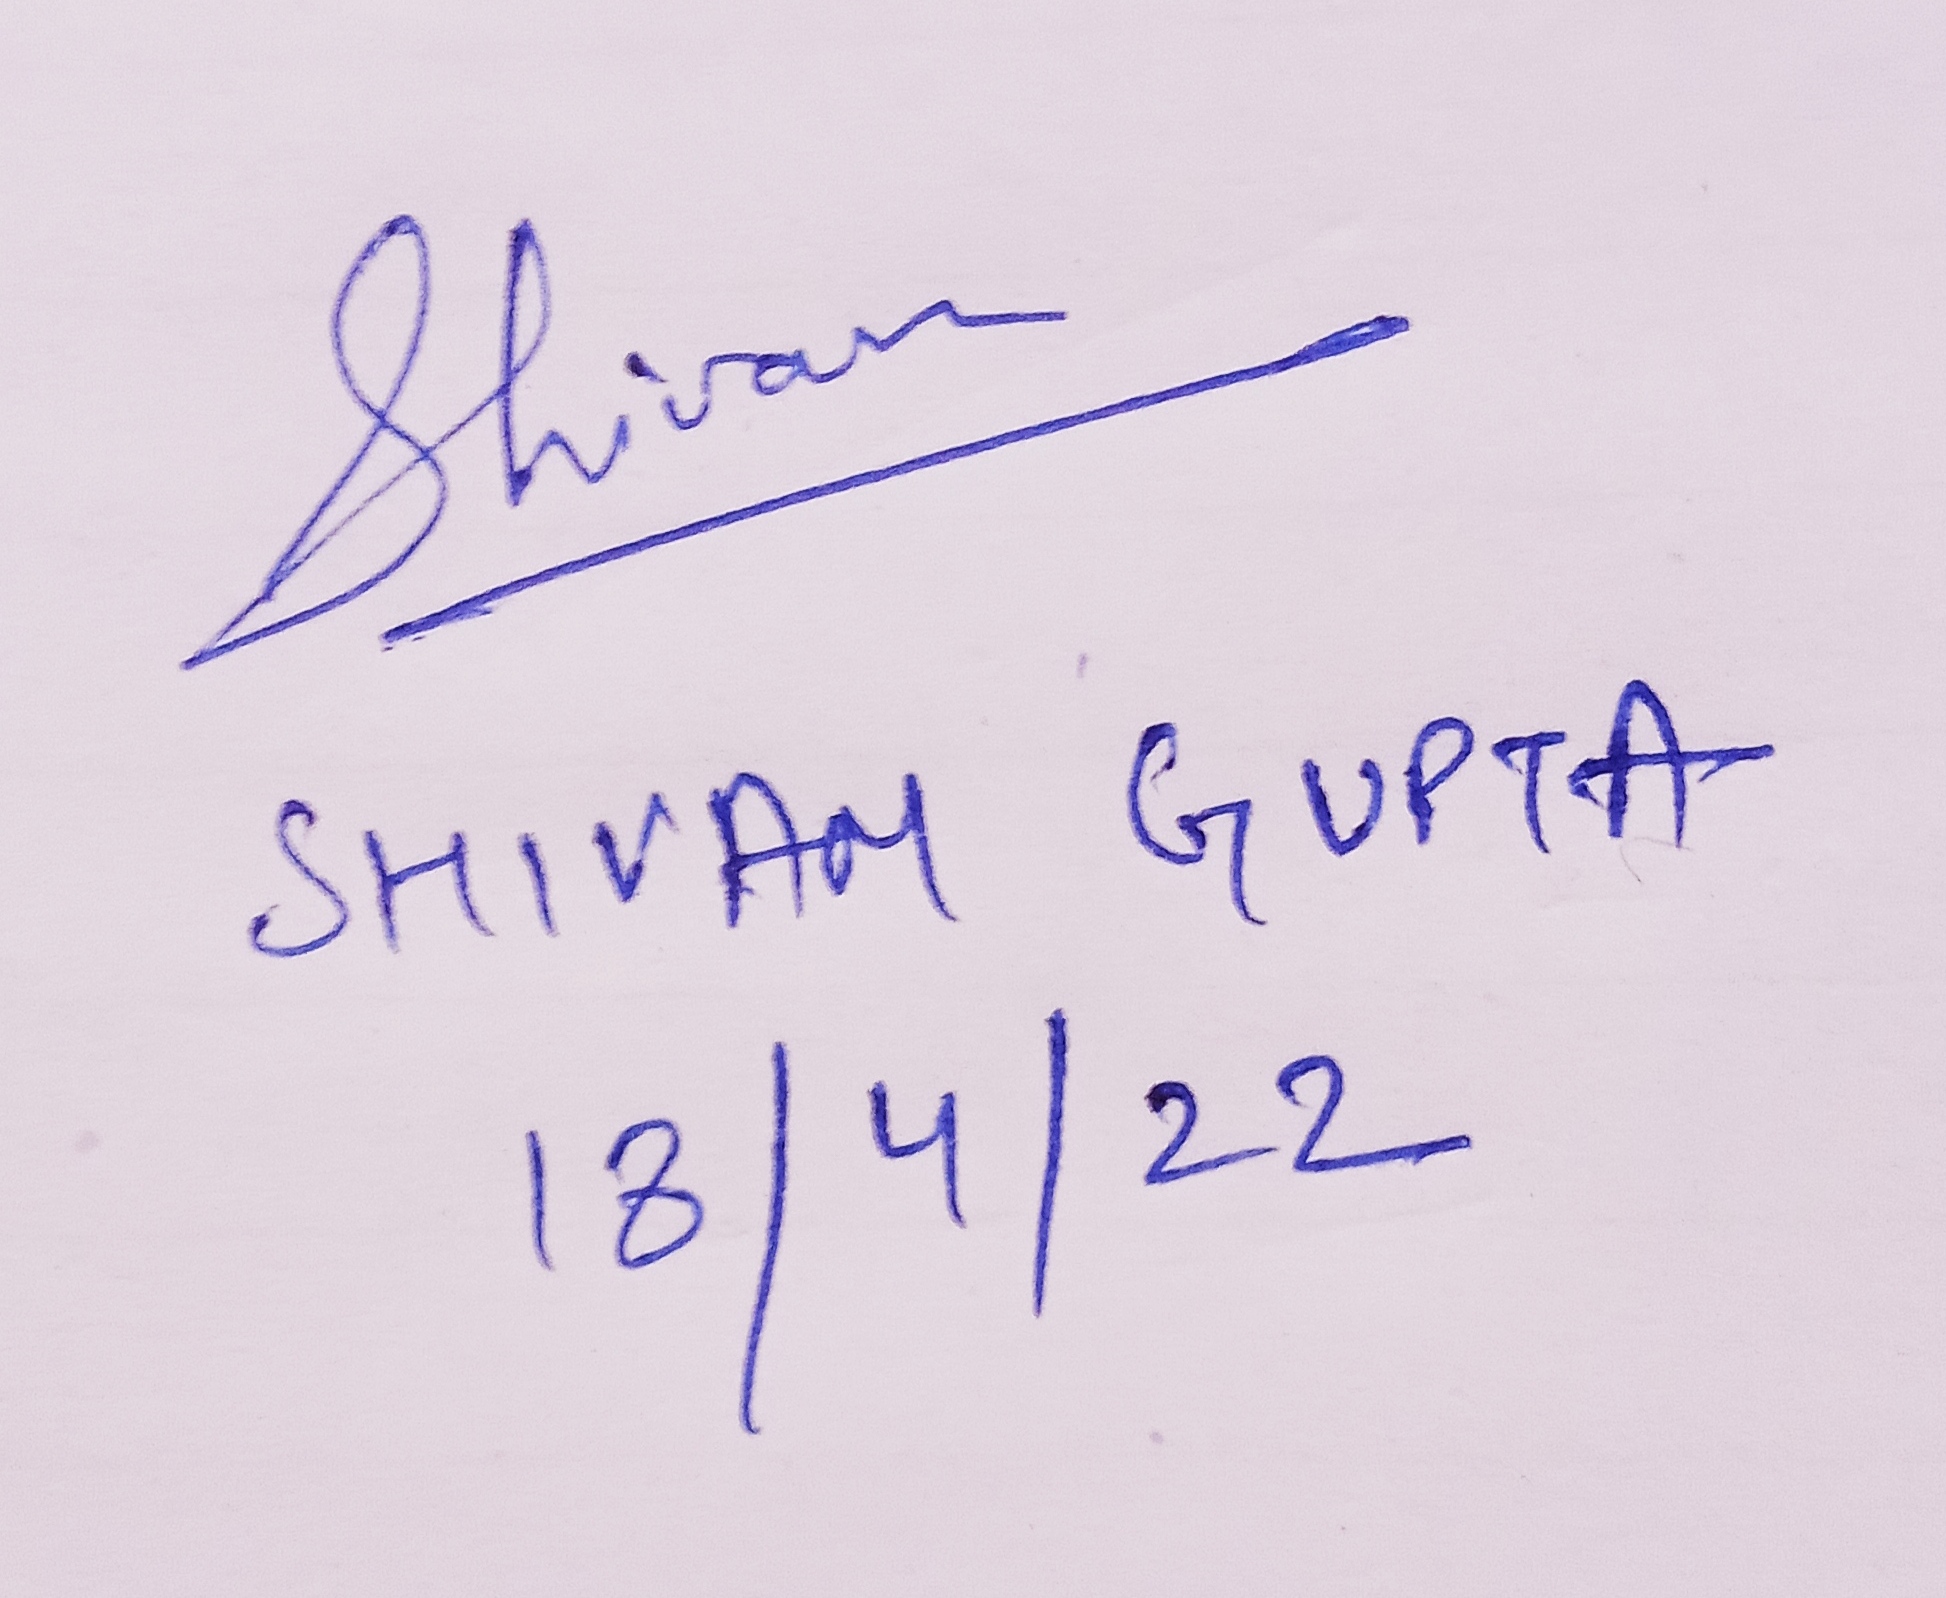 Shivam
SHIVAM GUPTA
18/4/22